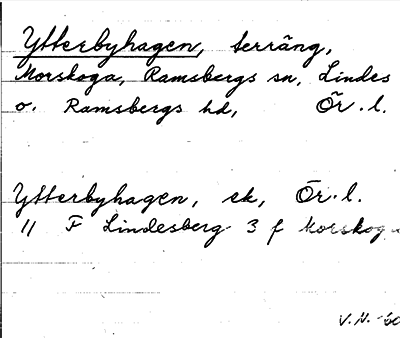 Ytterbyhagen, terräng,
Morskoga, Ramsbergs sn, Lindes
o. Ramsbergs hd, Ör. l.
Ytterbyhagen, ek, Ör. l.
11 F Lindesberg 3 f Morskoga
V.N. -60